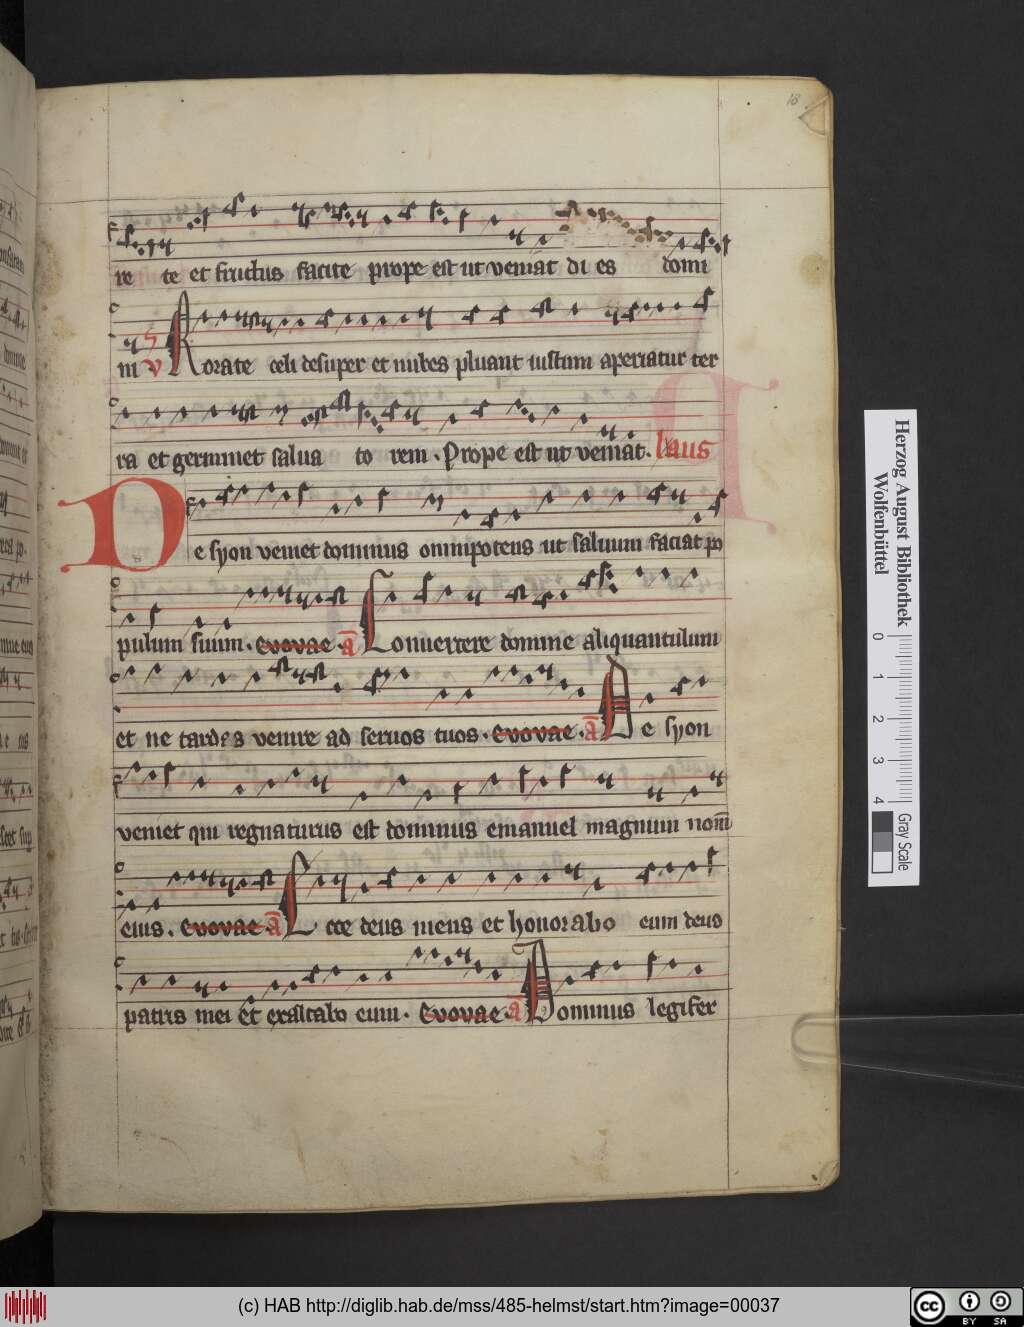 18
re te et fructus facite prope est ut veniat di es domi
ni v Rorate celi desuper et nubes pluant iustum aperiatur ter
ra et germinet salua to rem . Prope est ut veniat . laus
De syon veniet dominus omnipotens ut saluum faciat po
pulum suum . evovae . a Conuertere domine aliquantulum
et ne tardes venire ad seruos tuos . evovae . a De syon
veniet qui regnaturus est dominus emanuel magnum nom̄
eius . evovae . a Ecce deus meus et honorabo eum deus
patris mei et exaltabo eum . evovae . a Dominus legifer
Herzog August Bibliothek
Wolfenbüttel
0 1 2 3 4
Gray Scale
(c) HAB http://diglib.hab.de/mss/485-helmst/start.htm?image=00037
cc BY SA